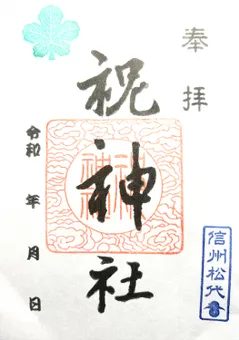 奉拝
祝神社
令和　年　月　日
信州松代